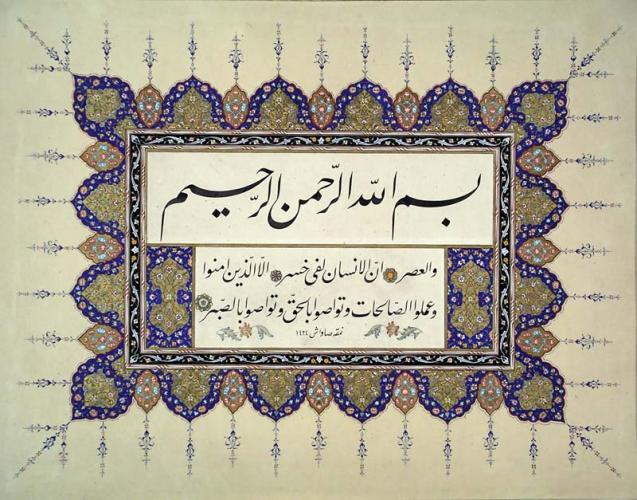 بسم الله الرّحمن الرّحیم
والعصر انّ الانسان لفی خسر الّا الّذین امنوا
وعملوا الصّالحات وتواصوا بالحقّ وتواصوا بالصّبر
نمقه صاواش ١٤٢٤